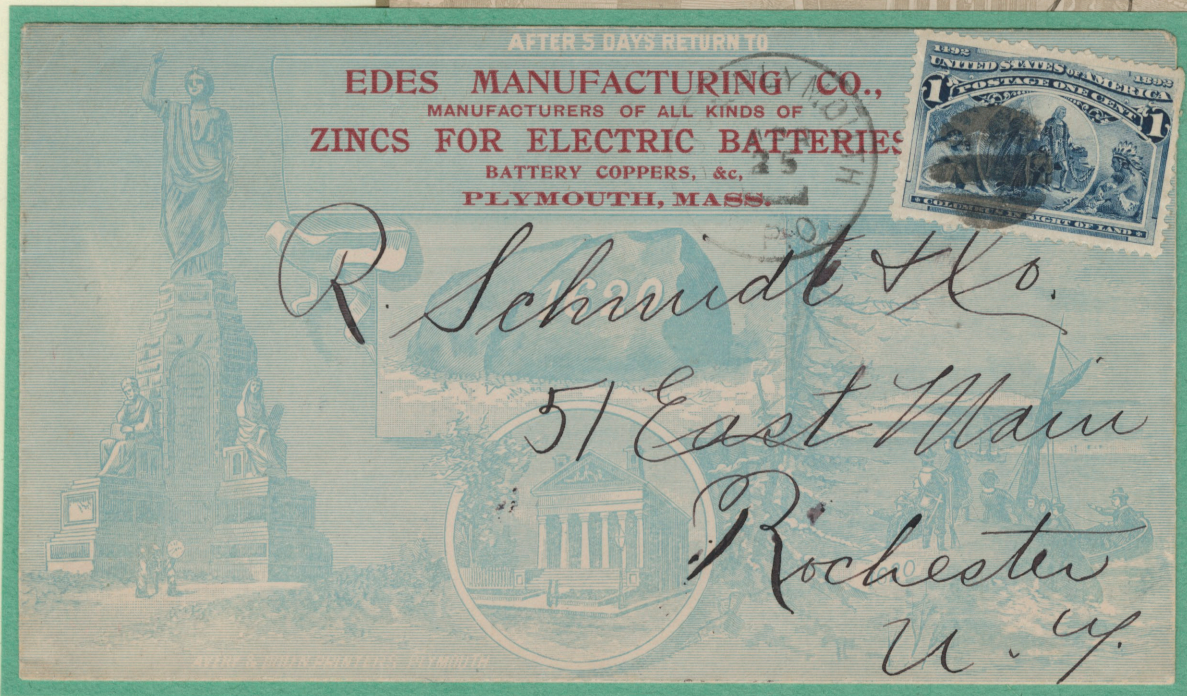 AFTER 5 DAYS RETURN TO
EDES MANUFACTURING CO.,
MANUFACTURERS OF ALL KINDS OF
ZINCS FOR ELECTRIC BATTERIES
BATTERY COPPERS, &c,
PLYMOUTH, MASS.
PLYMOUTH
25
1492
1892
UNITED STATES OF AMERICA
POSTAGE ONE CENT
1
1
COLUMBUS IN SIGHT OF LAND
1620
R. Schmidt & Co.
51 East Main
Rochester
N. Y.
AVERY & DOTEN PRINTERS PLYMOUTH